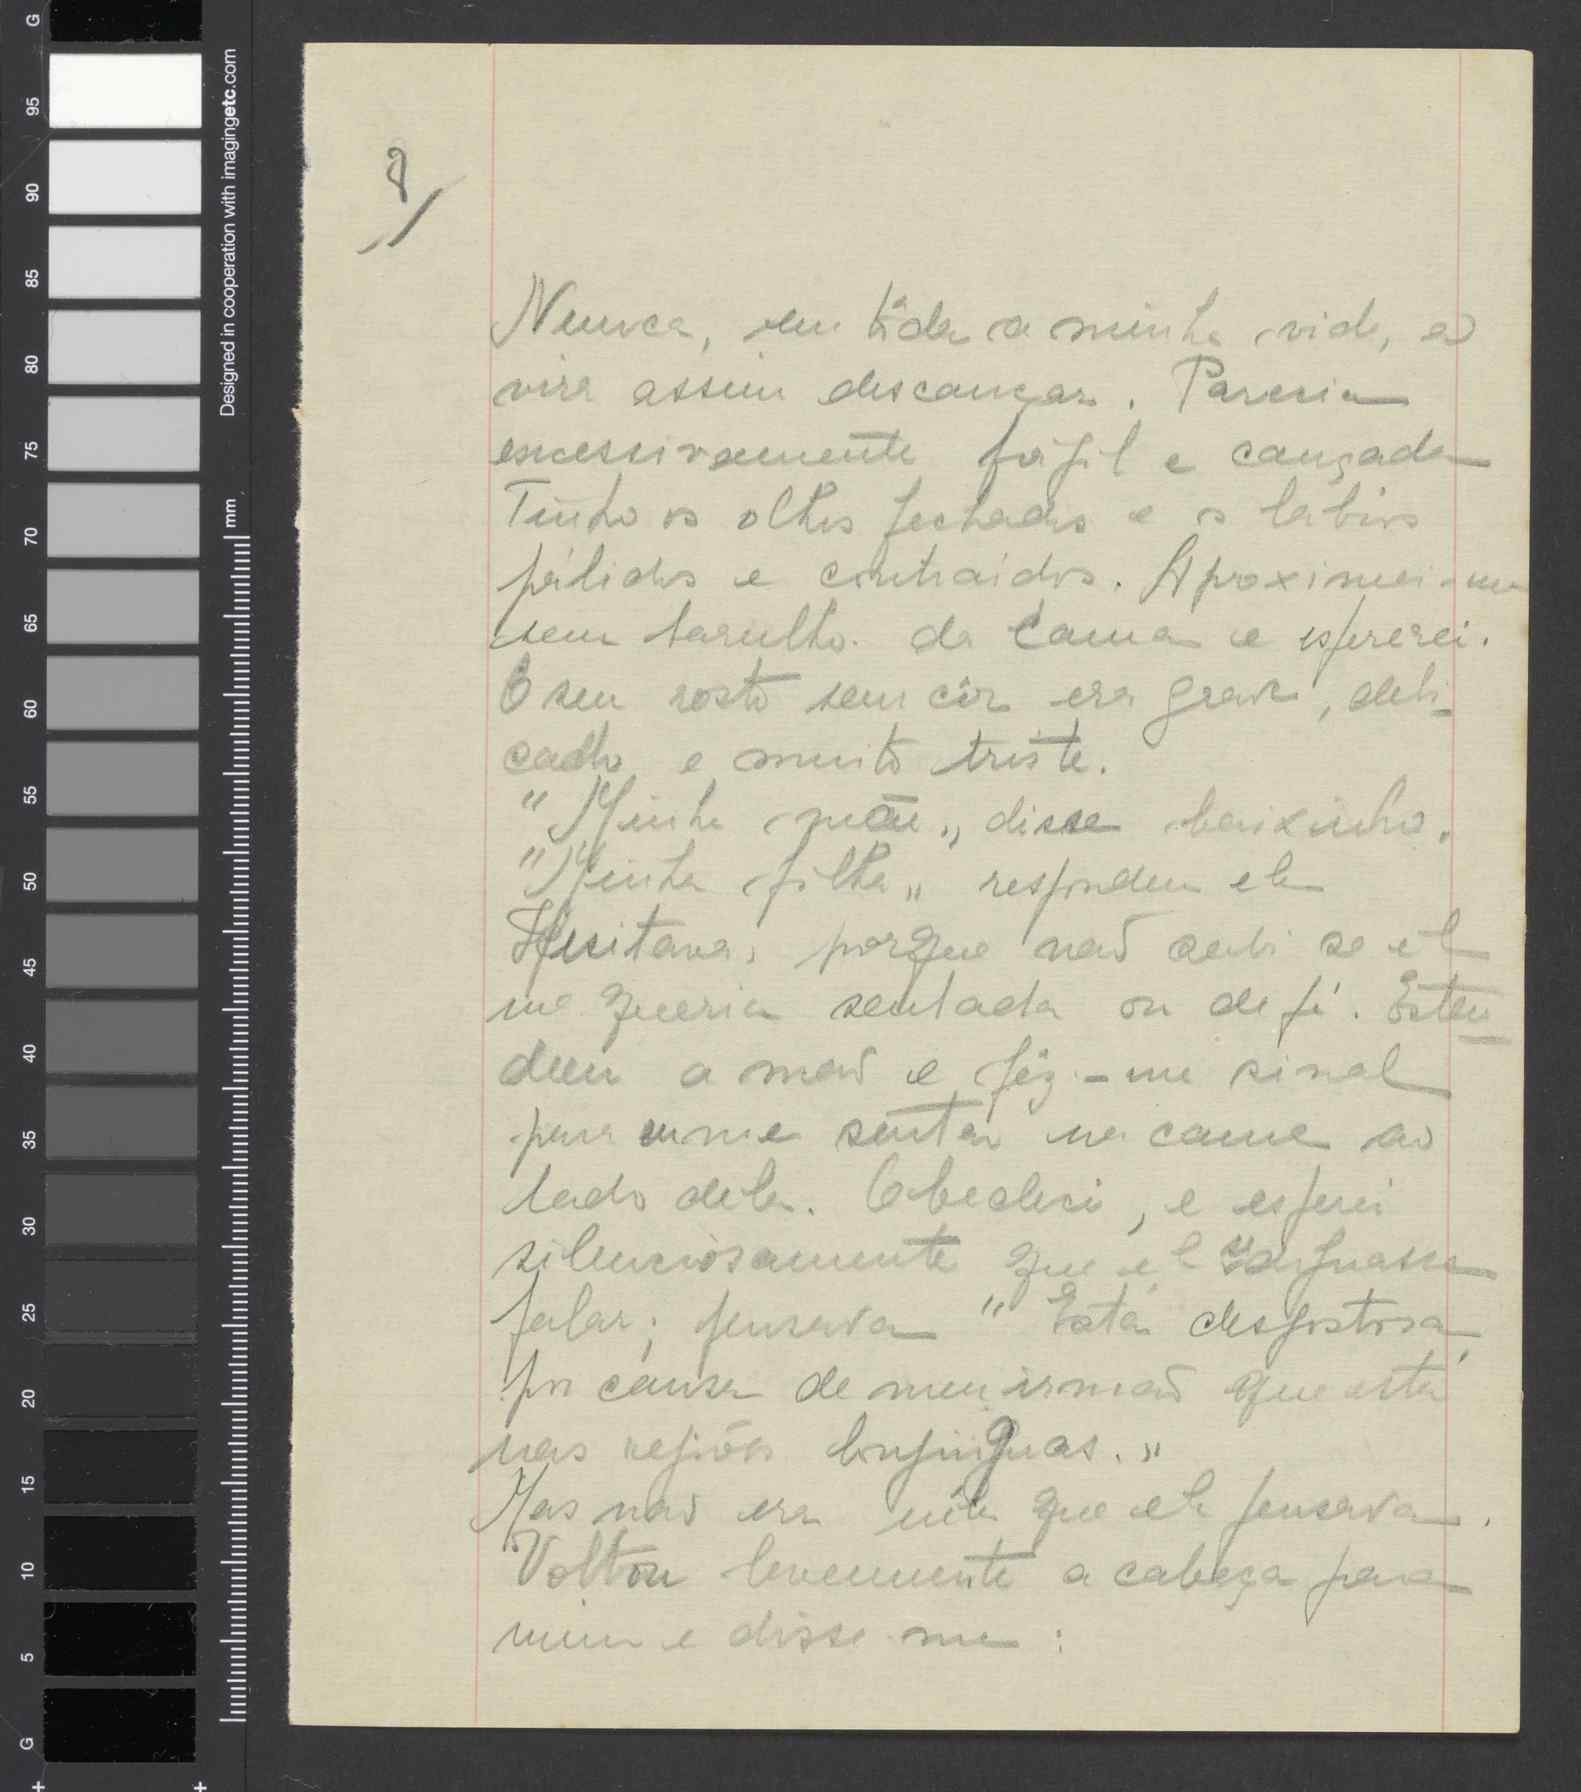 G
95
90
85
80
75
70
65
60
55
50
45
40
35
30
25
20
15
10
5
G
Designed in cooperation with imagingetc.com
mm
8
Nunca, em tôda a minha vida, a
vira assim descançar. Parecia
excessivamente frágil e cançada
Tinha os olhos fechados e os labios
pálidos e contraidos. Aproximei-me
sem barulho da cama e esperei.
O seu rosto sem côr era grave, deli-
cado e muito triste.
"Minha mãe„ disse baixinho.
"Minha filha„ respondeu ela
Hesitava, porque não sabi se ela
me queria sentada ou de pé. Esten
deu a mão e fêz-me sinal
para me sentar na cama ao
lado dela. Obedeci, e esperei
silenciosamente que ela
falar; pensava "Está desgostosa
por causa de meu irmão que está
nas regiões longinquas.„
Mas não era nêle que ela pensava.
Voltou levemente a cabeça para
mim e disse-me: